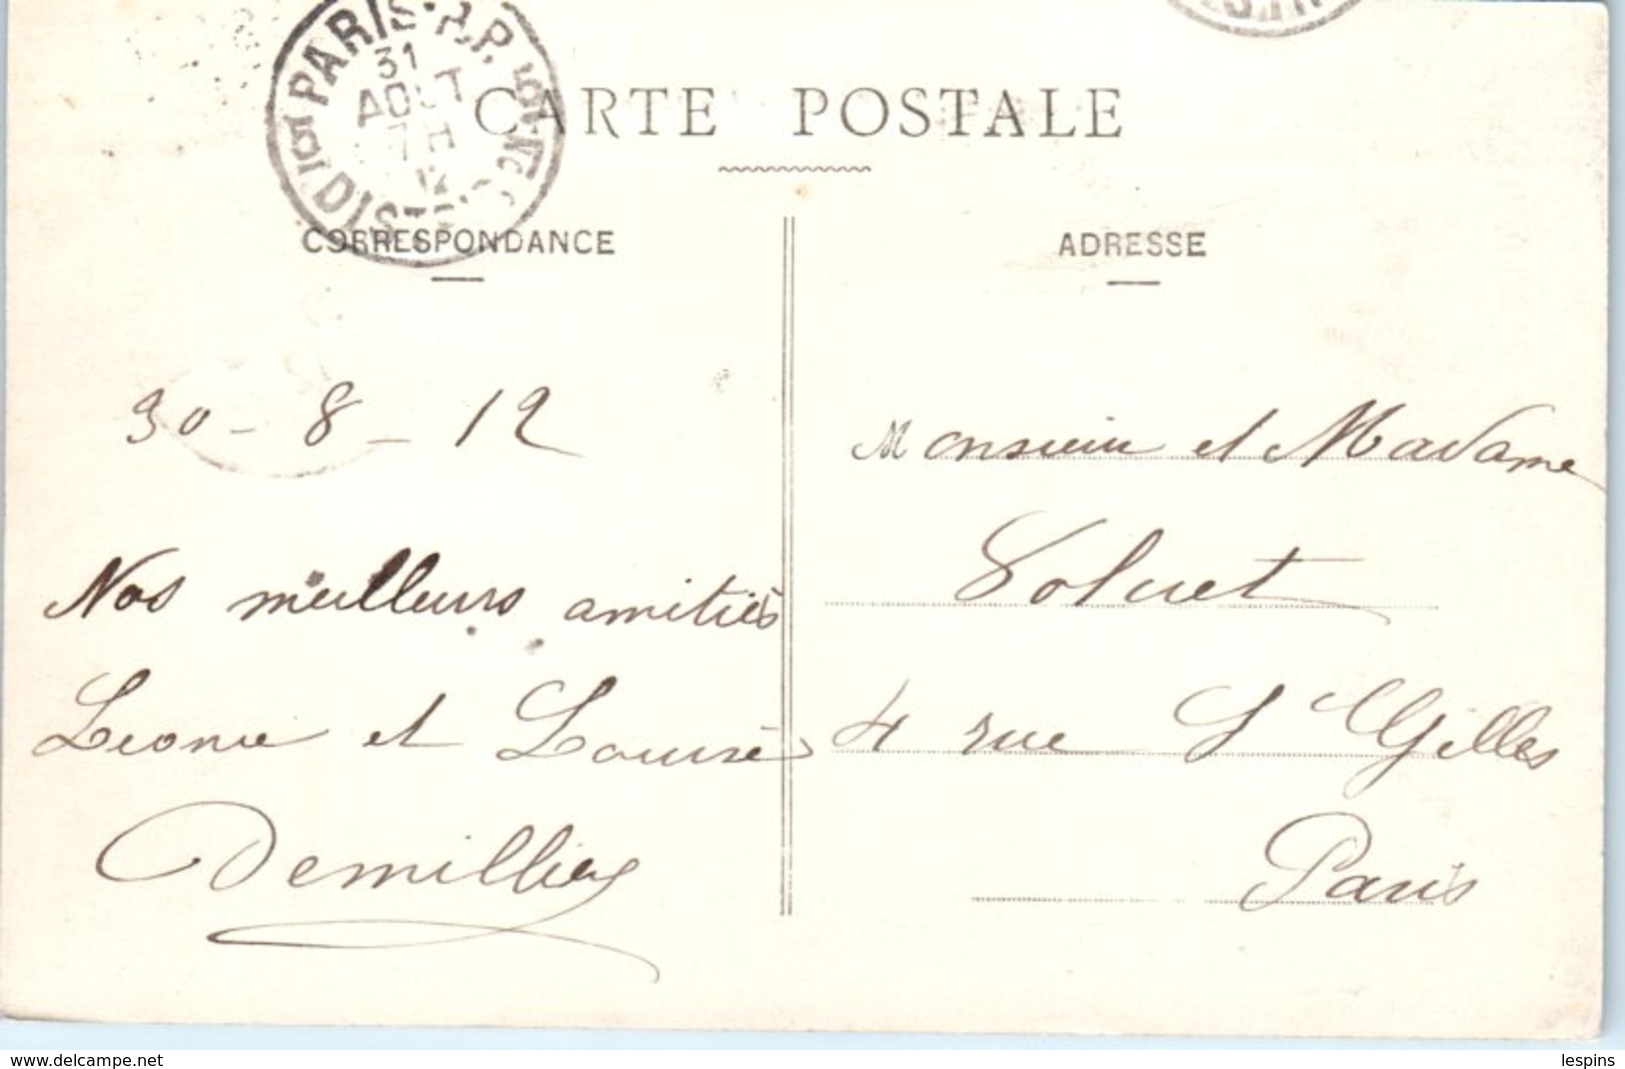 PARIS R.P.
31
AOUT
7 H
12
DISTON
CARTE POSTALE
CORRESPONDANCE
ADRESSE
30 - 8 - 12
Nos meilleurs amitiés
Leonie et Louise
Demilliey
Monsieur et Madame
Voluet
4 rue St Gilles
Paris
www.delcampe.net
lespins